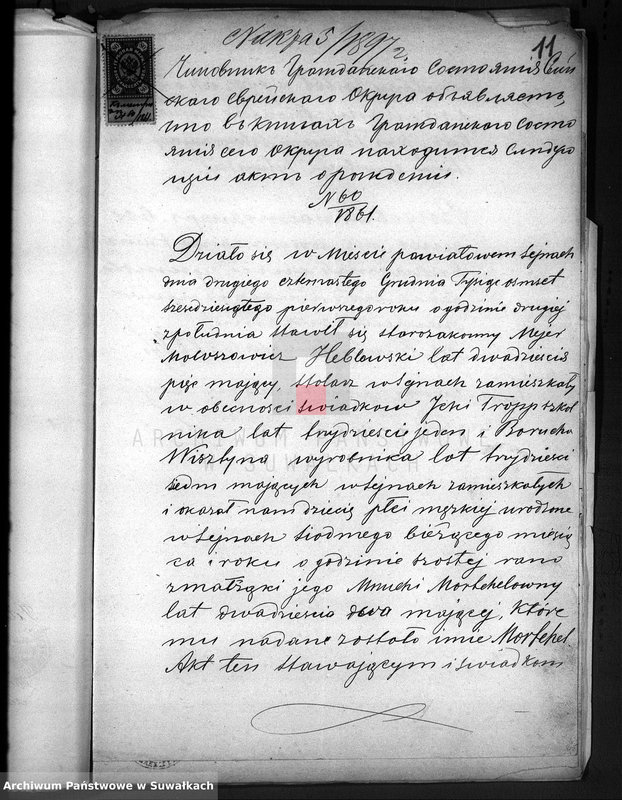 11
Чиновникъ Гражданскаго Состоянія Сей
скаго Еврейскаго Округа объявляетъ,
что въ книгахъ Гражданскаго Состо
янія сего Округа находится слѣдую
щій актъ о рожденіи.
N 60
1861.
Działo się w Mieście powiatowem Sejnach
dnia drugiego czternastego Grudnia Tysiąc osmset
szesdziesiątego pierwszego roku o godzinie drugiej
z południa stawił się starozakonny Mejer
Moloszowicz Heblowski lat dwadzieścia
pięc mający, stolarz w Sejnach zamieszkały
w obecności świadkow Icki Tropp szkol
nika lat trzydzieści jeden i Borucha
Wisztyna wyrobnika lat trzydzieści
sedm mających w Sejnach zamieszkałych
i okazał nam dziecię płci męzkiej urodzone
w Sejnach siodmego bieżącego miesią
ca i roku o godzinie szostej rano
z małżąki jego Mnuchi Morthelowny
lat dwadzieścia dwa mającej, Które
mu nadane zostało imie Morthel
Akt ten stawającym i swiadkom
Archiwum Państwowe w Suwałkach
ARCHIWUM PAŃSTWOWE
W SUWAŁKACH